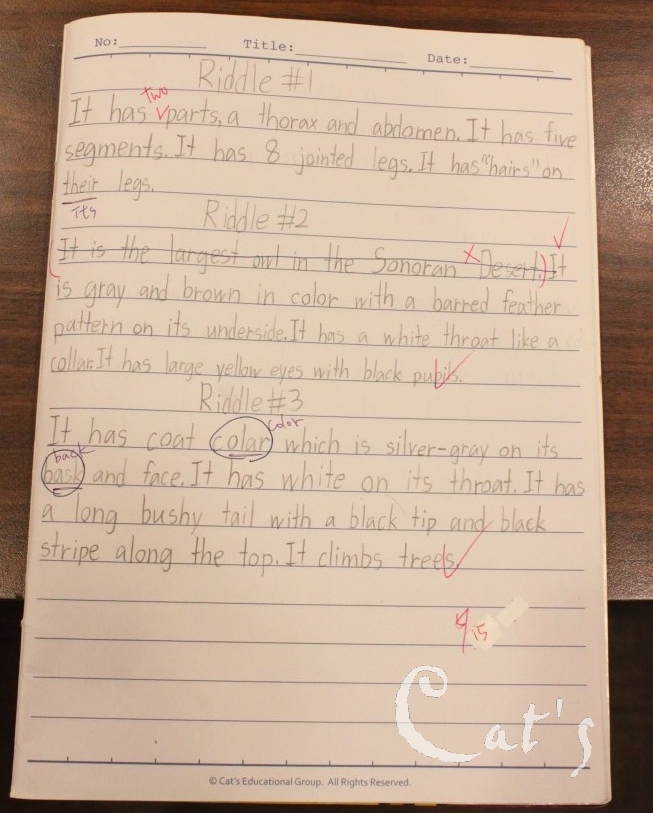 No: Title: Date:
Riddle #1
two
It has parts, a thorax and abdomen. It has five
segments. It has 8 jointed legs. It has "hairs" on
their legs.
its
Riddle #2
It is the largest owl in the Sonoran Desert. It
is gray and brown in color with a barred feather
pattern on its underside. It has a white throat like a
collar. It has large yellow eyes with black pupils.
Riddle #3
color
It has coat colar which is silver-gray on its
back
bask and face. It has white on its throat. It has
a long bushy tail with a black tip and black
stripe along the top. It climbs trees.
9/15
Cat's
© Cat's Educational Group. All Rights Reserved.